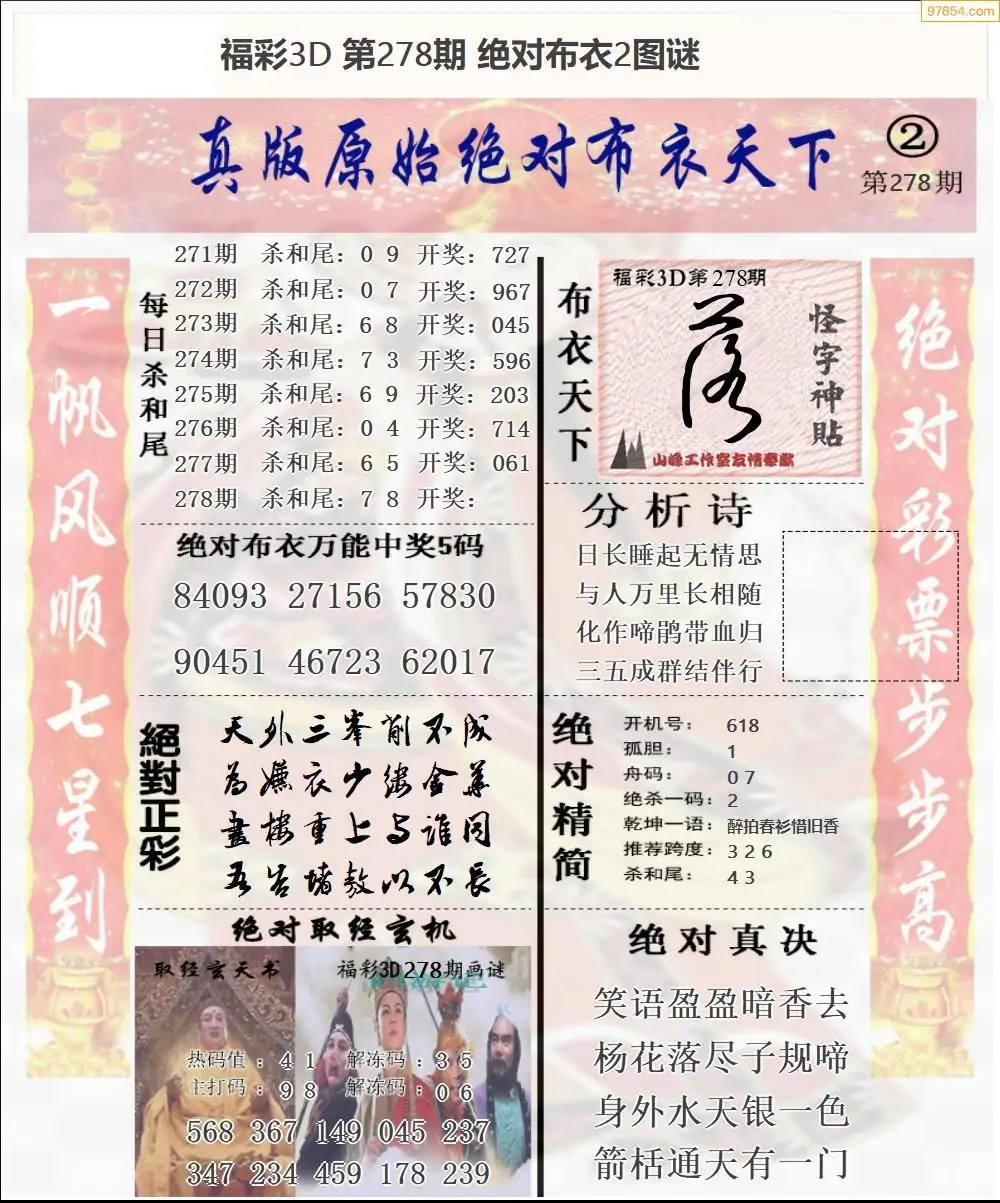 97654.com
福彩3D 第278期 绝对布衣2图谜
真版原始绝对布衣天下
②
第278期
一帆风顺七星到
每日杀和尾
271期 杀和尾：0 9 开奖：727
272期 杀和尾：0 7 开奖：967
273期 杀和尾：6 8 开奖：045
274期 杀和尾：7 3 开奖：596
275期 杀和尾：6 9 开奖：203
276期 杀和尾：0 4 开奖：714
277期 杀和尾：6 5 开奖：061
278期 杀和尾：7 8 开奖：
绝对布衣万能中奖5码
84093 27156 57830
90451 46723 62017
絕對正彩
天外三峯削不成
为嫌衣少缕金华
畫楼重上与谁同
吾岂堵敖以不长
绝对取经玄机
取经玄天书
福彩3D278期画谜
热码值：4 1 解冻码：3 5
主打码：9 8 解冻码：0 6
568 367 149 045 237
347 234 459 178 239
布衣天下
福彩3D第278期
落
怪字神貼
山峰工作室友情奉献
分析诗
日长睡起无情思
与人万里长相随
化作啼鹃带血归
三五成群结伴行
绝对精简
开机号：618
孤胆：1
舟码：0 7
绝杀一码：2
乾坤一语：醉拍春衫惜旧香
推荐跨度：3 2 6
杀和尾：4 3
绝对真决
笑语盈盈暗香去
杨花落尽子规啼
身外水天银一色
箭栝通天有一门
绝对彩票步步高